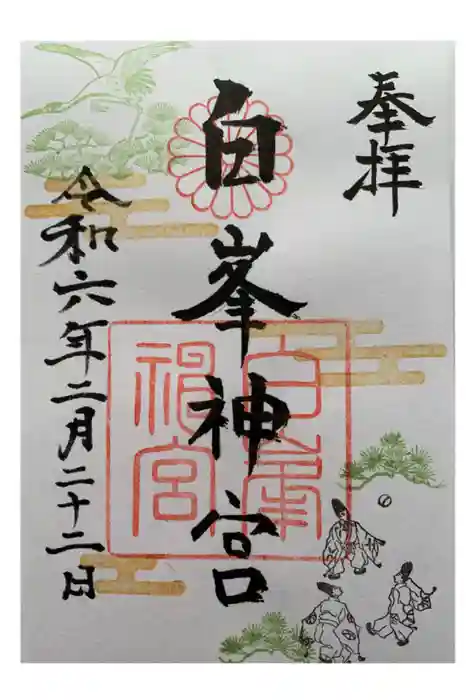 奉拝
白峯神宮
白峯神宮
令和六年二月二十二日